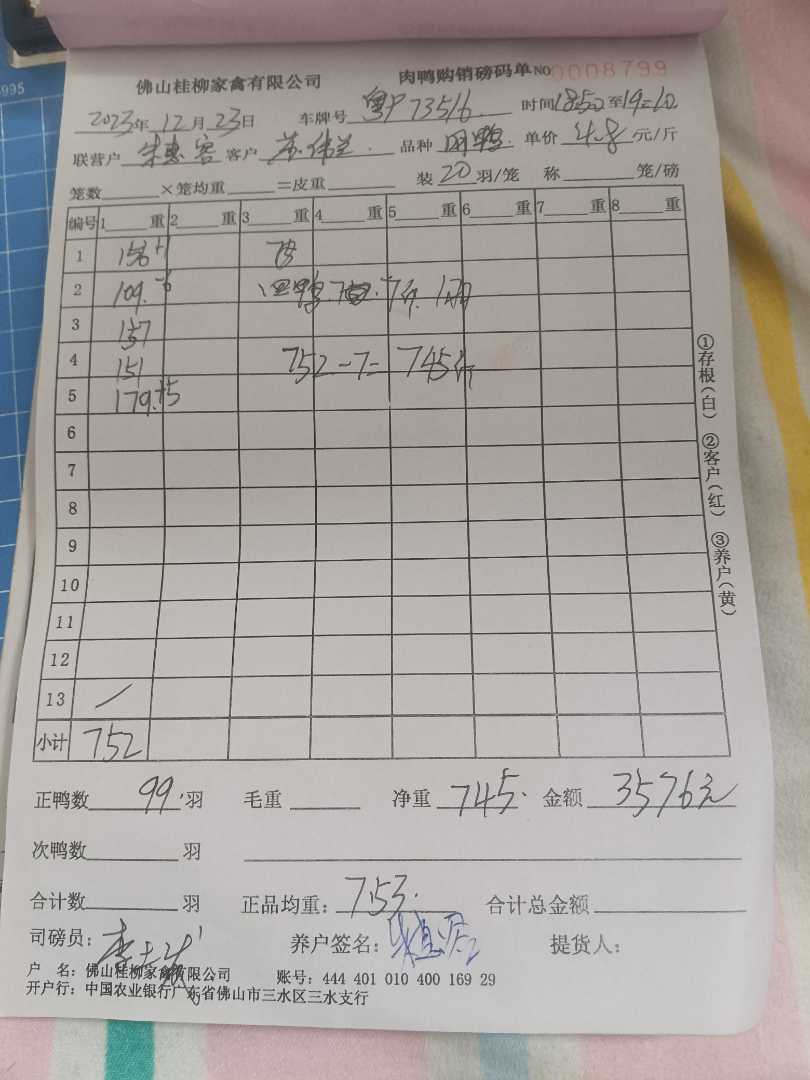 995
佛山桂柳家禽有限公司 肉鸭购销磅码单 NO 0008799
2023年 12月 23日 车牌号 粤P73516 时间18:50至19:10
联营户 客户 品种 肉鸭 单价 4.8 元/斤
笼数 ×笼均重 =皮重 装 20 羽/笼 称 笼/磅
编号 1 重 2 重 3 重 4 重 5 重 6 重 7 重 8 重
1 156 +1
2 109. -6
3 157
4 151 752-7=745斤
5 179. +5
6
7
8
9
10
11
12
13
小计 752
正鸭数 99 羽 毛重 净重 745 金额 3576元
次鸭数 羽
合计数 羽 正品均重: 7.53 合计总金额
司磅员: 养户签名: 提货人:
户 名: 佛山桂柳家禽有限公司 账号: 444 401 010 400 169 29
开户行: 中国农业银行广东省佛山市三水区三水支行
①存根(白) ②客户(红) ③养户(黄)